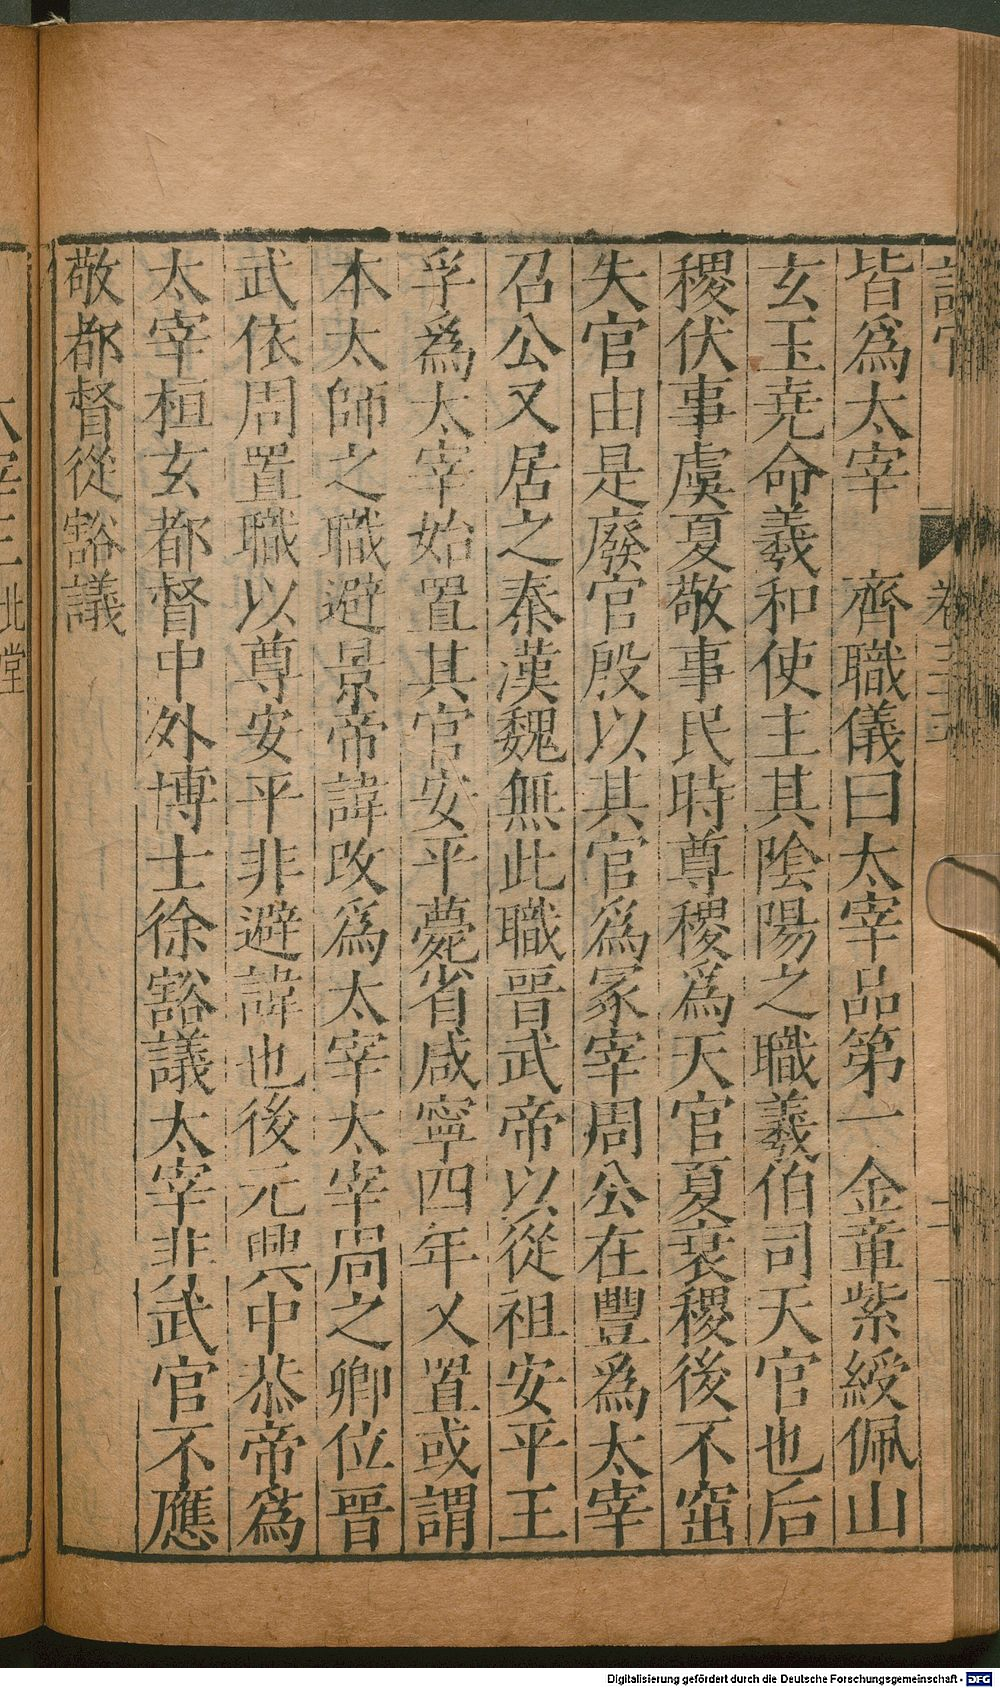 皆爲太宰　齊職儀曰太宰品第一金章紫綬佩山
玄玉堯命羲和使主其陰陽之職羲伯司天官也后
稷伏事虞夏敬事民時尊稷爲天官夏衰稷後不窋
失官由是廢官殷以其官爲冢宰周公在豐爲太宰
召公又居之秦漢魏無此職晉武帝以從祖安平王
孚爲太宰始置其官安平薨省咸寧四年又置或謂
本太師之職避景帝諱改爲太宰太宰尚之卿位晉
武依周置職以尊安平非避諱也後元興中恭帝爲
太宰桓玄都督中外博士徐豁議太宰非武官不應
敬都督從豁議
卷三十三
北堂
Digitalisierung gefördert durch die Deutsche Forschungsgemeinschaft - DFG